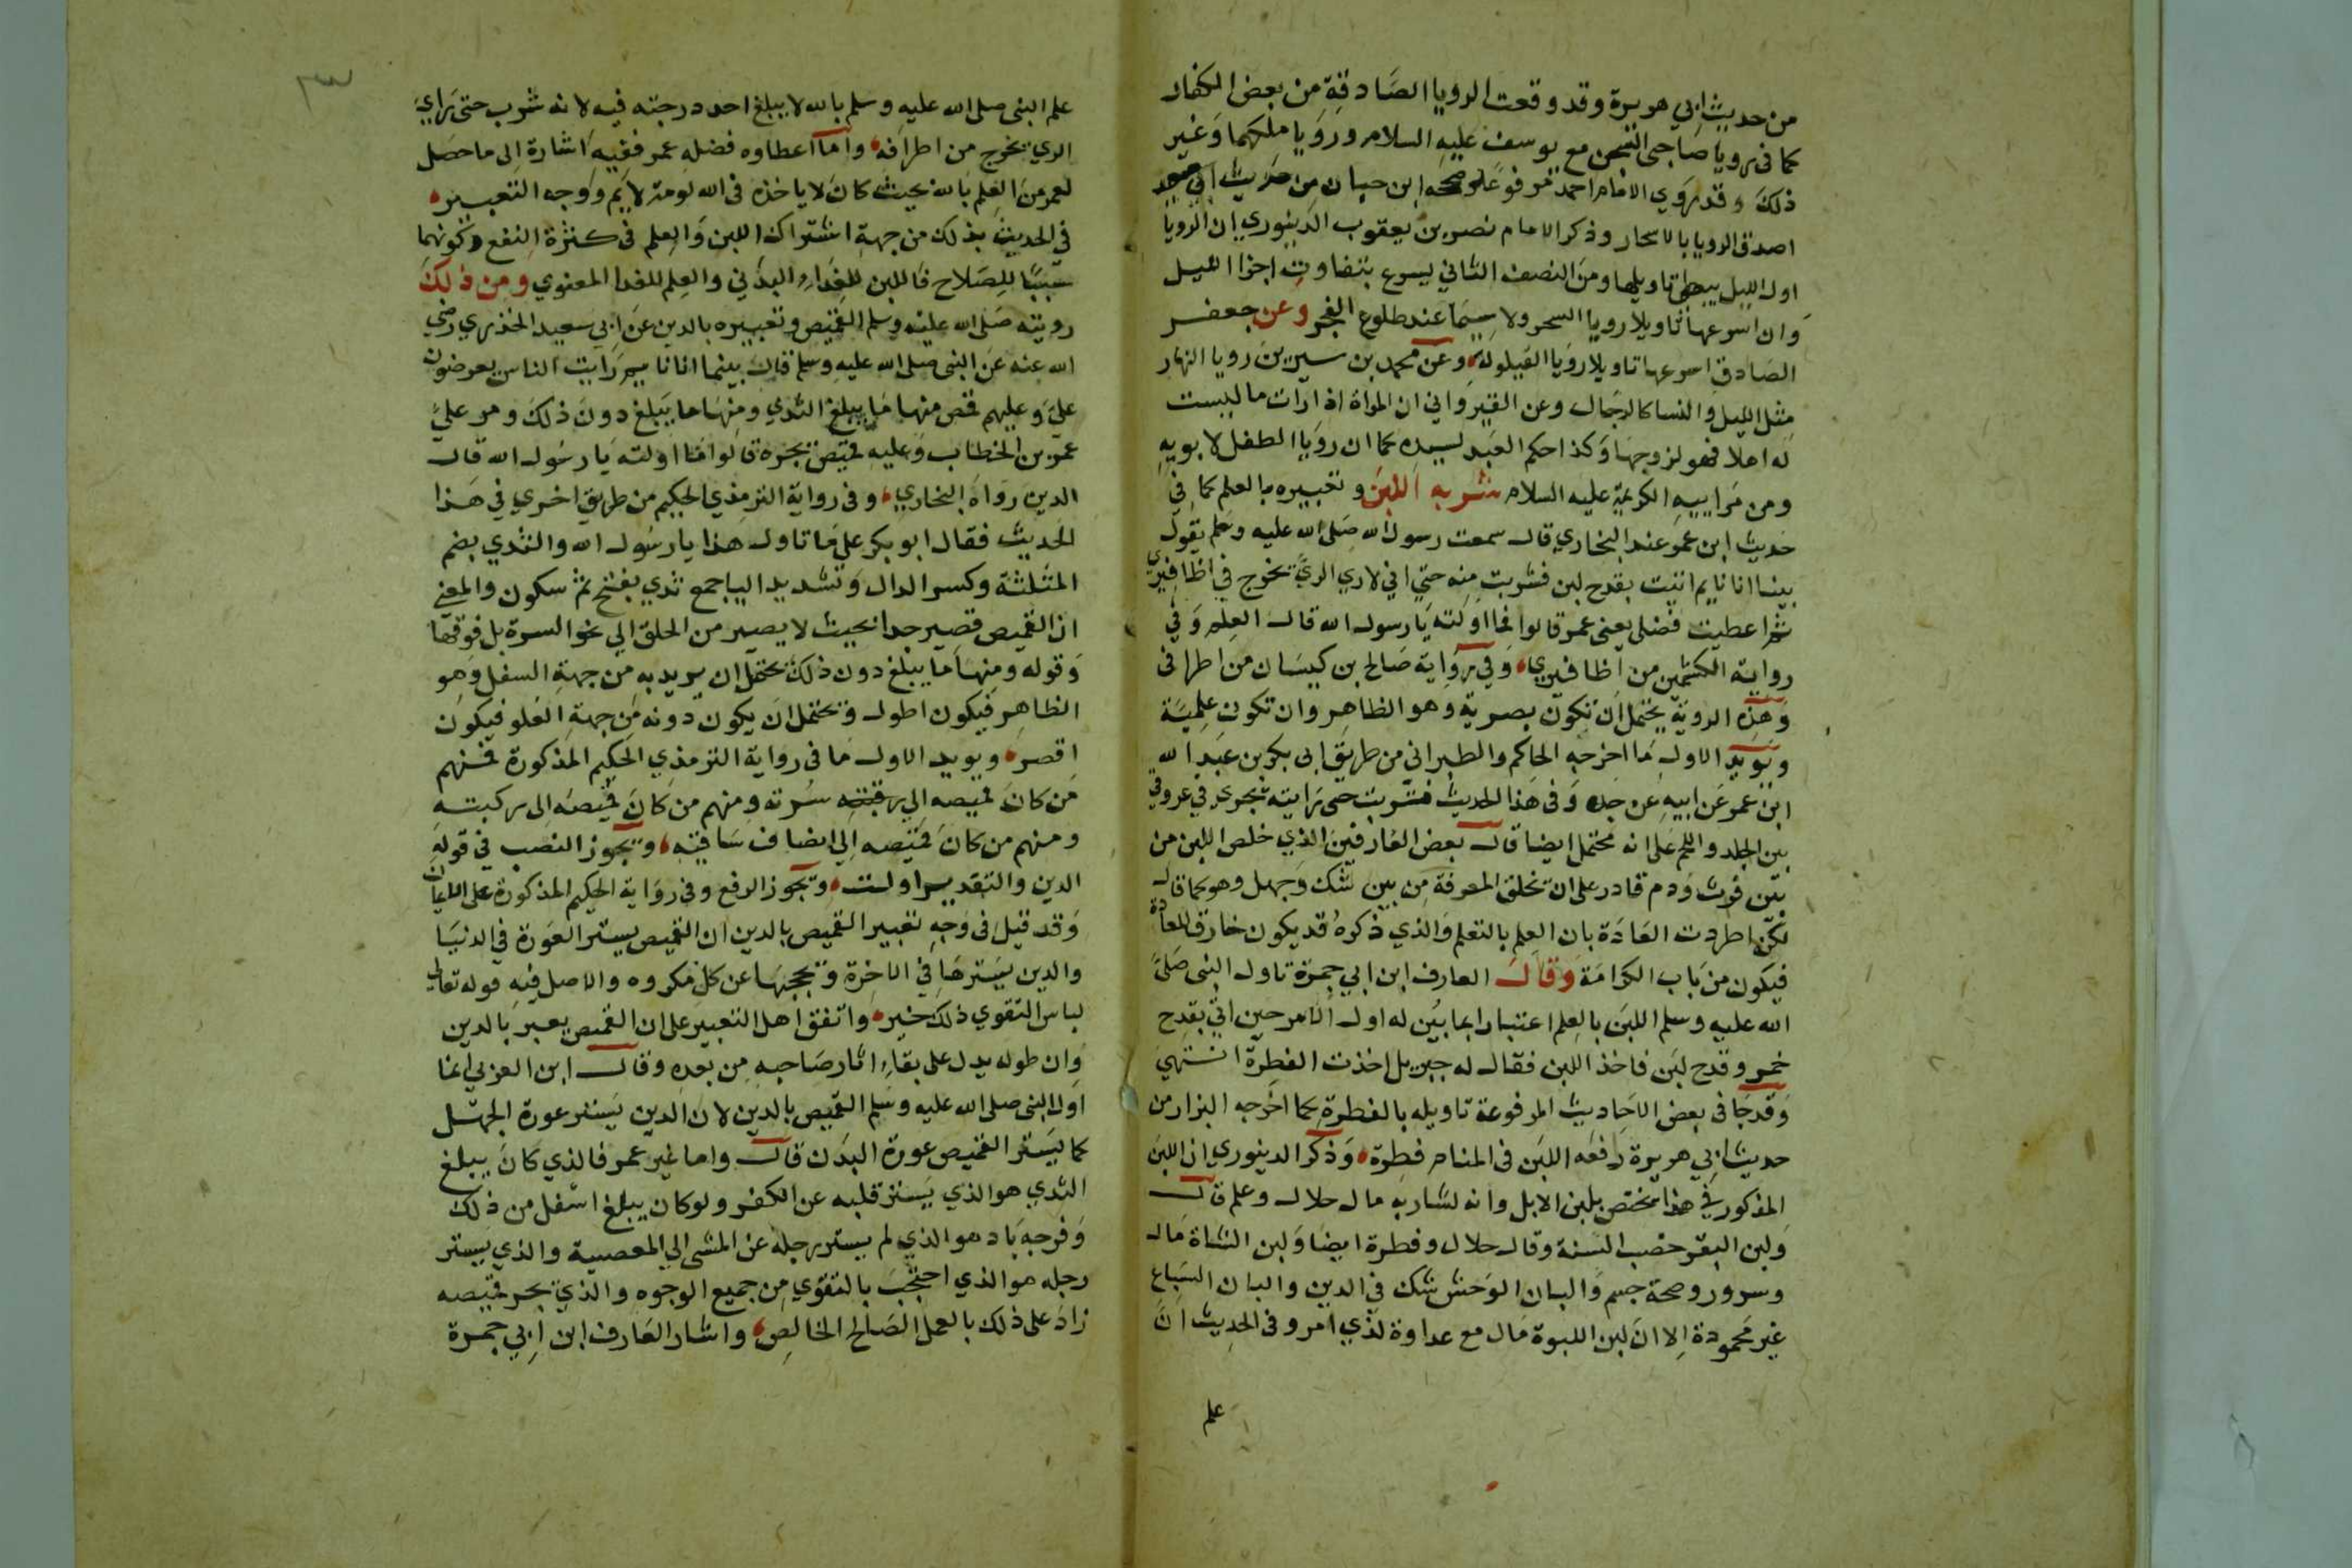 من حديث ابي هريرة وقد وقعت الرويا الصادقة من بعض الكفار
كما فى رويا صاحبى السجن مع يوسف عليه السلام ورويا ملكهما وغير
ذلك وقد روي الامام احمد مرفوعا وصححه ابن حبان من حديث ابي سعيد
اصدق الرويا بالاسحار وذكر الامام نصر بن يعقوب الدينوري ان الرويا
اول الليل يبطى تاويلها ومن النصف الثاني يسرع بتفاوت اجزا الليل
وان اسرعها تاويلا رويا السحر ولا سيما عند طلوع الفجر وعن جعفر
الصادق اسرعها تاويلا رويا القيلولة وعن محمد بن سيرين رويا النهار
مثل الليل والنسا كالرجال وعن القيرواني ان المراة اذا رات ما ليست
له اهلا فهو لزوجها وكذا حكم العبد لسيده كما ان رويا الطفل لابويه
ومن مراييه الكريمة عليه السلام شربه اللبن وتعبيره بالعلم كما في
حديث ابن عمر عند البخاري قال سمعت رسول الله صلى الله عليه وسلم يقول
بينا انا نايم اتيت بقدح لبن فشربت منه حتي اني لاري الري يخرج في اظافيري
ثم اعطيت فضلى يعنى عمر قالوا فما اولته يا رسول الله قال العلم وفي
رواية الكشميهن من اظافيري وفي رواية صالح بن كيسان من اطرافى
وهذه الروية يحتمل ان تكون بصرية وهو الظاهر وان تكون علمية
ويويد الاول ما اخرجه الحاكم والطبراني من طريق ابى بكر بن عبد الله
ابن عمر عن ابيه عن جده وفى هذا الحديث فشربت حتى رايته يجري في عروقي
بين الجلد واللحم على انه محتمل ايضا قال بعض العارفين الذي خلص اللبن من
بين فرث ودم قادر على ان يخلق المعرفة من بين شك وجهل وهو كما قال
لكن اطردت العادة بان العلم بالتعلم والذي ذكره قد يكون خارق للعادة
فيكون من باب الكرامة وقال العارف ابن ابي جمرة تاول النبى صلى
الله عليه وسلم اللبن بالعلم اعتبارا بما بين له اول الامر حين اتي بقدح
خمر وقدح لبن فاخذ اللبن فقال له جبريل اخذت الفطرة انتهي
وقد جا فى بعض الاحاديث المرفوعة تاويله بالفطرة كما اخرجه البزار من
حديث ابي هريرة رفعه اللبن فى المنام فطرة وذكر الدينوري ان اللبن
المذكور في هذا يختص بلبن الابل وانه لشاربه مال حلال وعلم قال
ولبن البقر خصب السنة وقال حلال وفطرة ايضا ولبن الشاة مال
وسرور وصحة جسم والبان الوحش شك في الدين والبان السباع
غير محمودة الا ان لبن اللبوة مال مع عداوة لذي امر وفى الحديث ان
علم
٣
علم النبى صلى الله عليه وسلم بالله لا يبلغ احد درجته فيه لانه شرب حتى راي
الري يخرج من اطرافه واما اعطاوه فضله عمر ففيه اشارة الى ما حصل
لعمر من العلم بالله بحيث كان لا ياخذه فى الله لومة لايم ووجه التعبير
في الحديث بذلك من جهة اشتراك اللبن والعلم فى كثرة النفع وكونهما
سببا للصلاح فاللبن للغذاء البدني والعلم للغذا المعنوي ومن ذلك
رويته صلى الله عليه وسلم القميص وتعبيره بالدين عن ابي سعيد الخدري رضي
الله عنه عن النبى صلى الله عليه وسلم قال بينما انا نايم رايت الناس يعرضون
علي وعليهم قمص منها ما يبلغ الثدي ومنها ما يبلغ دون ذلك ومر علي
عمر بن الخطاب وعليه قميص يجره قالوا فما اولته يا رسول الله قال
الدين رواه البخاري وفى رواية الترمذي الحكيم من طريق اخري في هذا
الحديث فقال ابو بكر على ما تاول هذا يا رسول الله والثدي بضم
المثلثة وكسر الدال وتشديد اليا جمع ثدي بفتح ثم سكون والمعني
ان القميص قصير جدا بحيث لا يصير من الحلق الي نحو السرة بل فوقها
وقوله ومنها ما يبلغ دون ذلك يحتمل ان يريد به من جهة السفل وهو
الظاهر فيكون اطول ويحتمل ان يكون دونه من جهة العلو فيكون
اقصر ويويد الاول ما فى رواية الترمذي الحكيم المذكورة فمنهم
من كان قميصه الي رقبته سرته ومنهم من كان قميصه الى ركبته
ومنهم من كان قميصه الي انصاف ساقيه ويجوز النصب في قوله
الدين والتقدير اولت ويجوز الرفع وفى رواية الحكيم المذكورة على الايمان
وقد قيل فى وجه تعبير القميص بالدين ان القميص يستر العورة في الدنيا
والدين يسترها في الاخرة ويحجبها عن كل مكروه والاصل فيه قوله تعالى
لباس التقوي ذلك خير واتفق اهل التعبير على ان القميص يعبر بالدين
وان طوله يدل على بقاء اثار صاحبه من بعده وقال ابن العربي انما
اوله النبى صلى الله عليه وسلم القميص بالدين لان الدين يستر عورة الجهل
كما يستر القميص عورة البدن قال واما غير عمر فالذي كان يبلغ
الثدي هو الذي يستر قلبه عن الكفر ولو كان يبلغ اسفل من ذلك
وفرجه باد هو الذي لم يستر رجله عن المشى الي المعصية والذي يستر
رجله هو الذي احتجب بالتقوي من جميع الوجوه والذي يجر قميصه
زاد على ذلك بالعمل الصالح الخالص واشار العارف ابن ابي جمرة